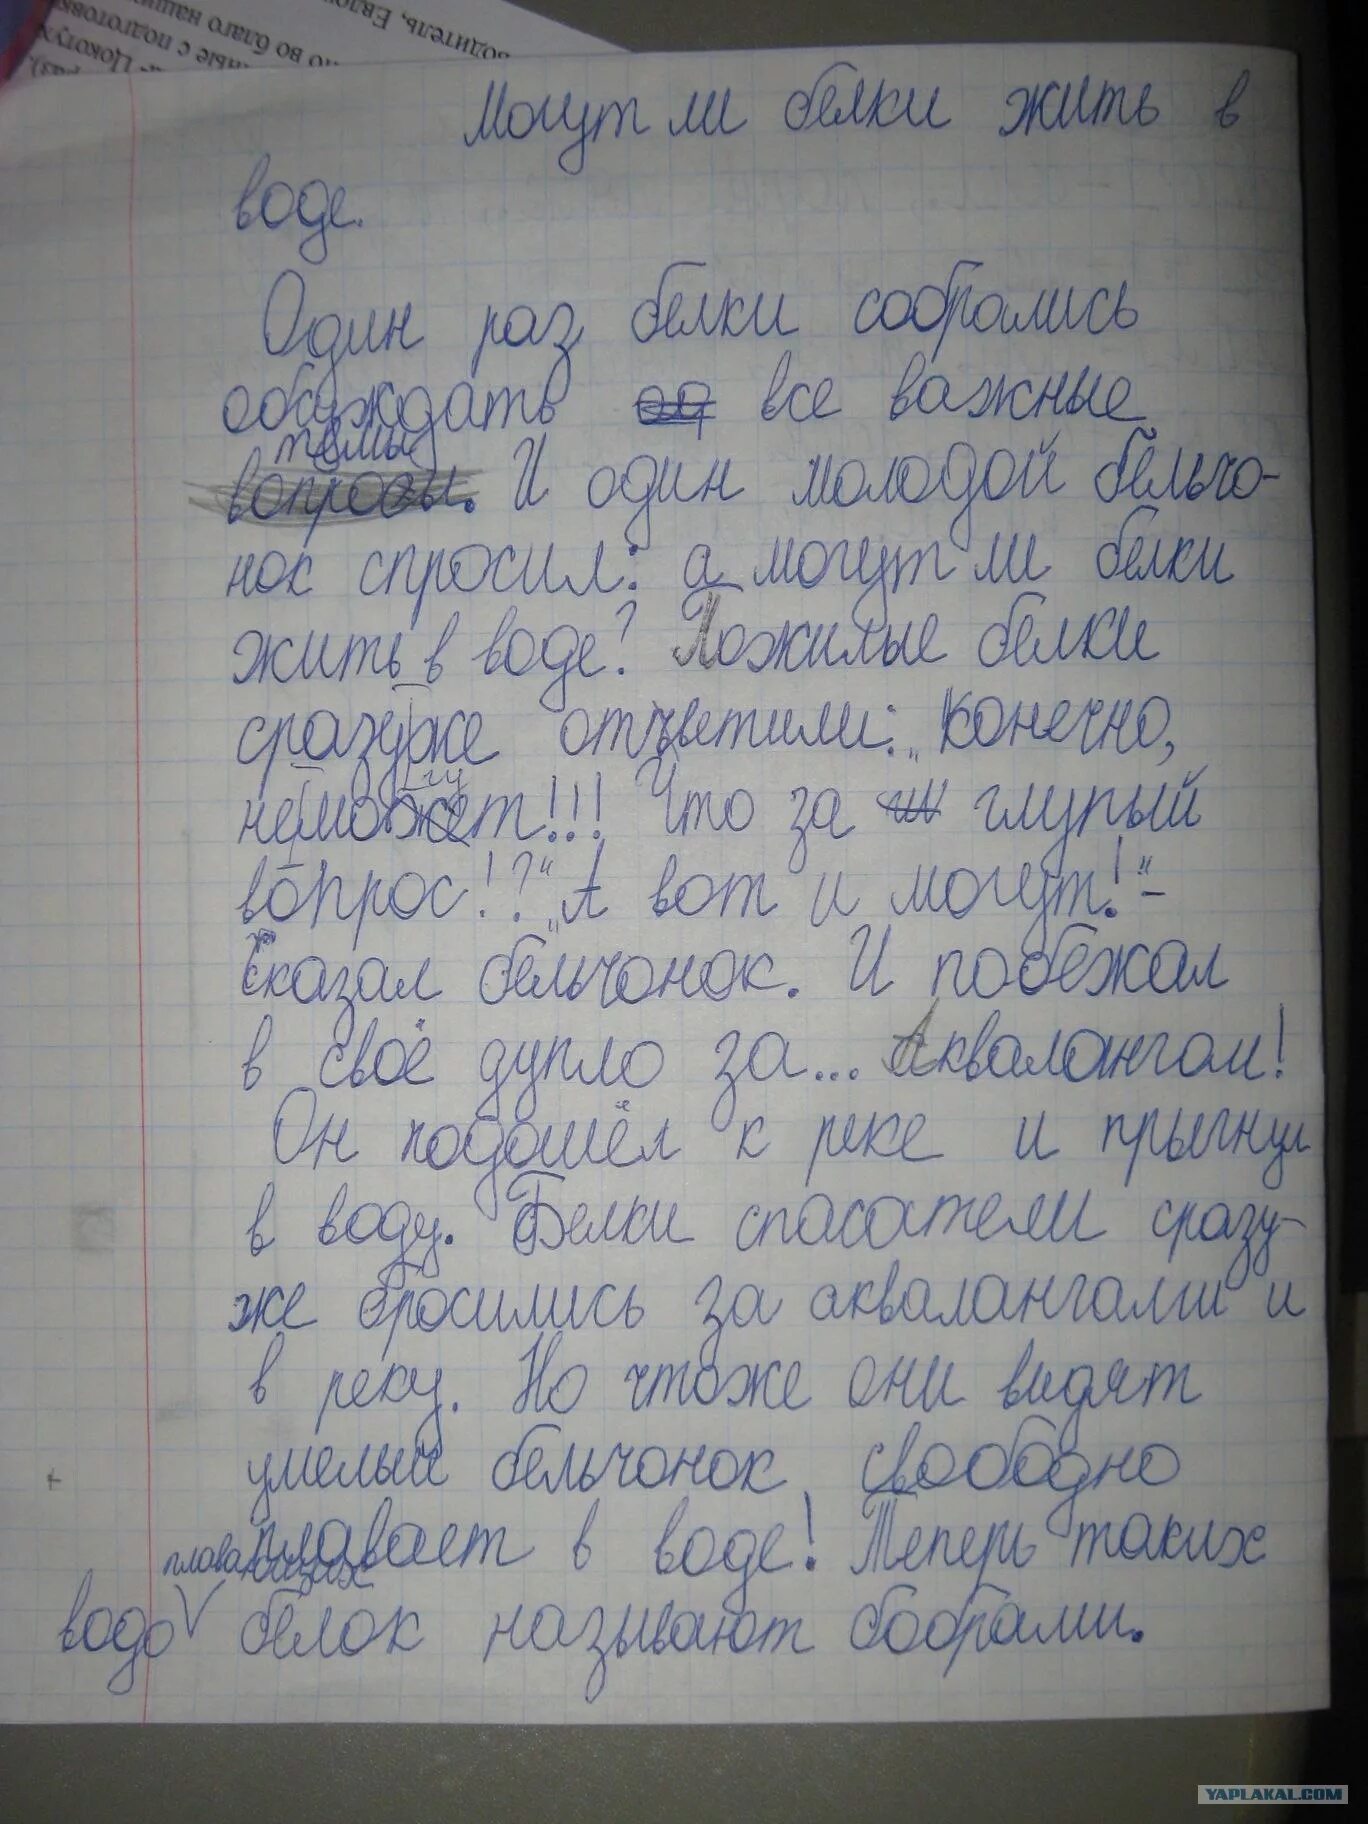 водитель, Евдо
но во благо наши
ные с подготовк
Цокотух
Могут ли белки жить в
воде.
Один раз белки собрались
обсуждать все важные
темы
вопросы. И один молодой бельчо-
нок спросил: а могут ли белки
жить в воде? Пожилые белки
сразуже ответили: „Конечно,
немогут!!! Что за глупый
вопрос!?“ „А вот и могут!“-
сказал бельчонок. И побежал
в своё дупло за... Аквалангом!
Он подошёл к реке и прыгнул
в воду. Белки спасатели сразу-
же бросились за аквалангами и
в реку. Но чтоже они видят
умелый бельчонок свободно
плавает в воде! Теперь таких
плавающих
водо V белок называют бобрами.
YAPLAKAL.COM